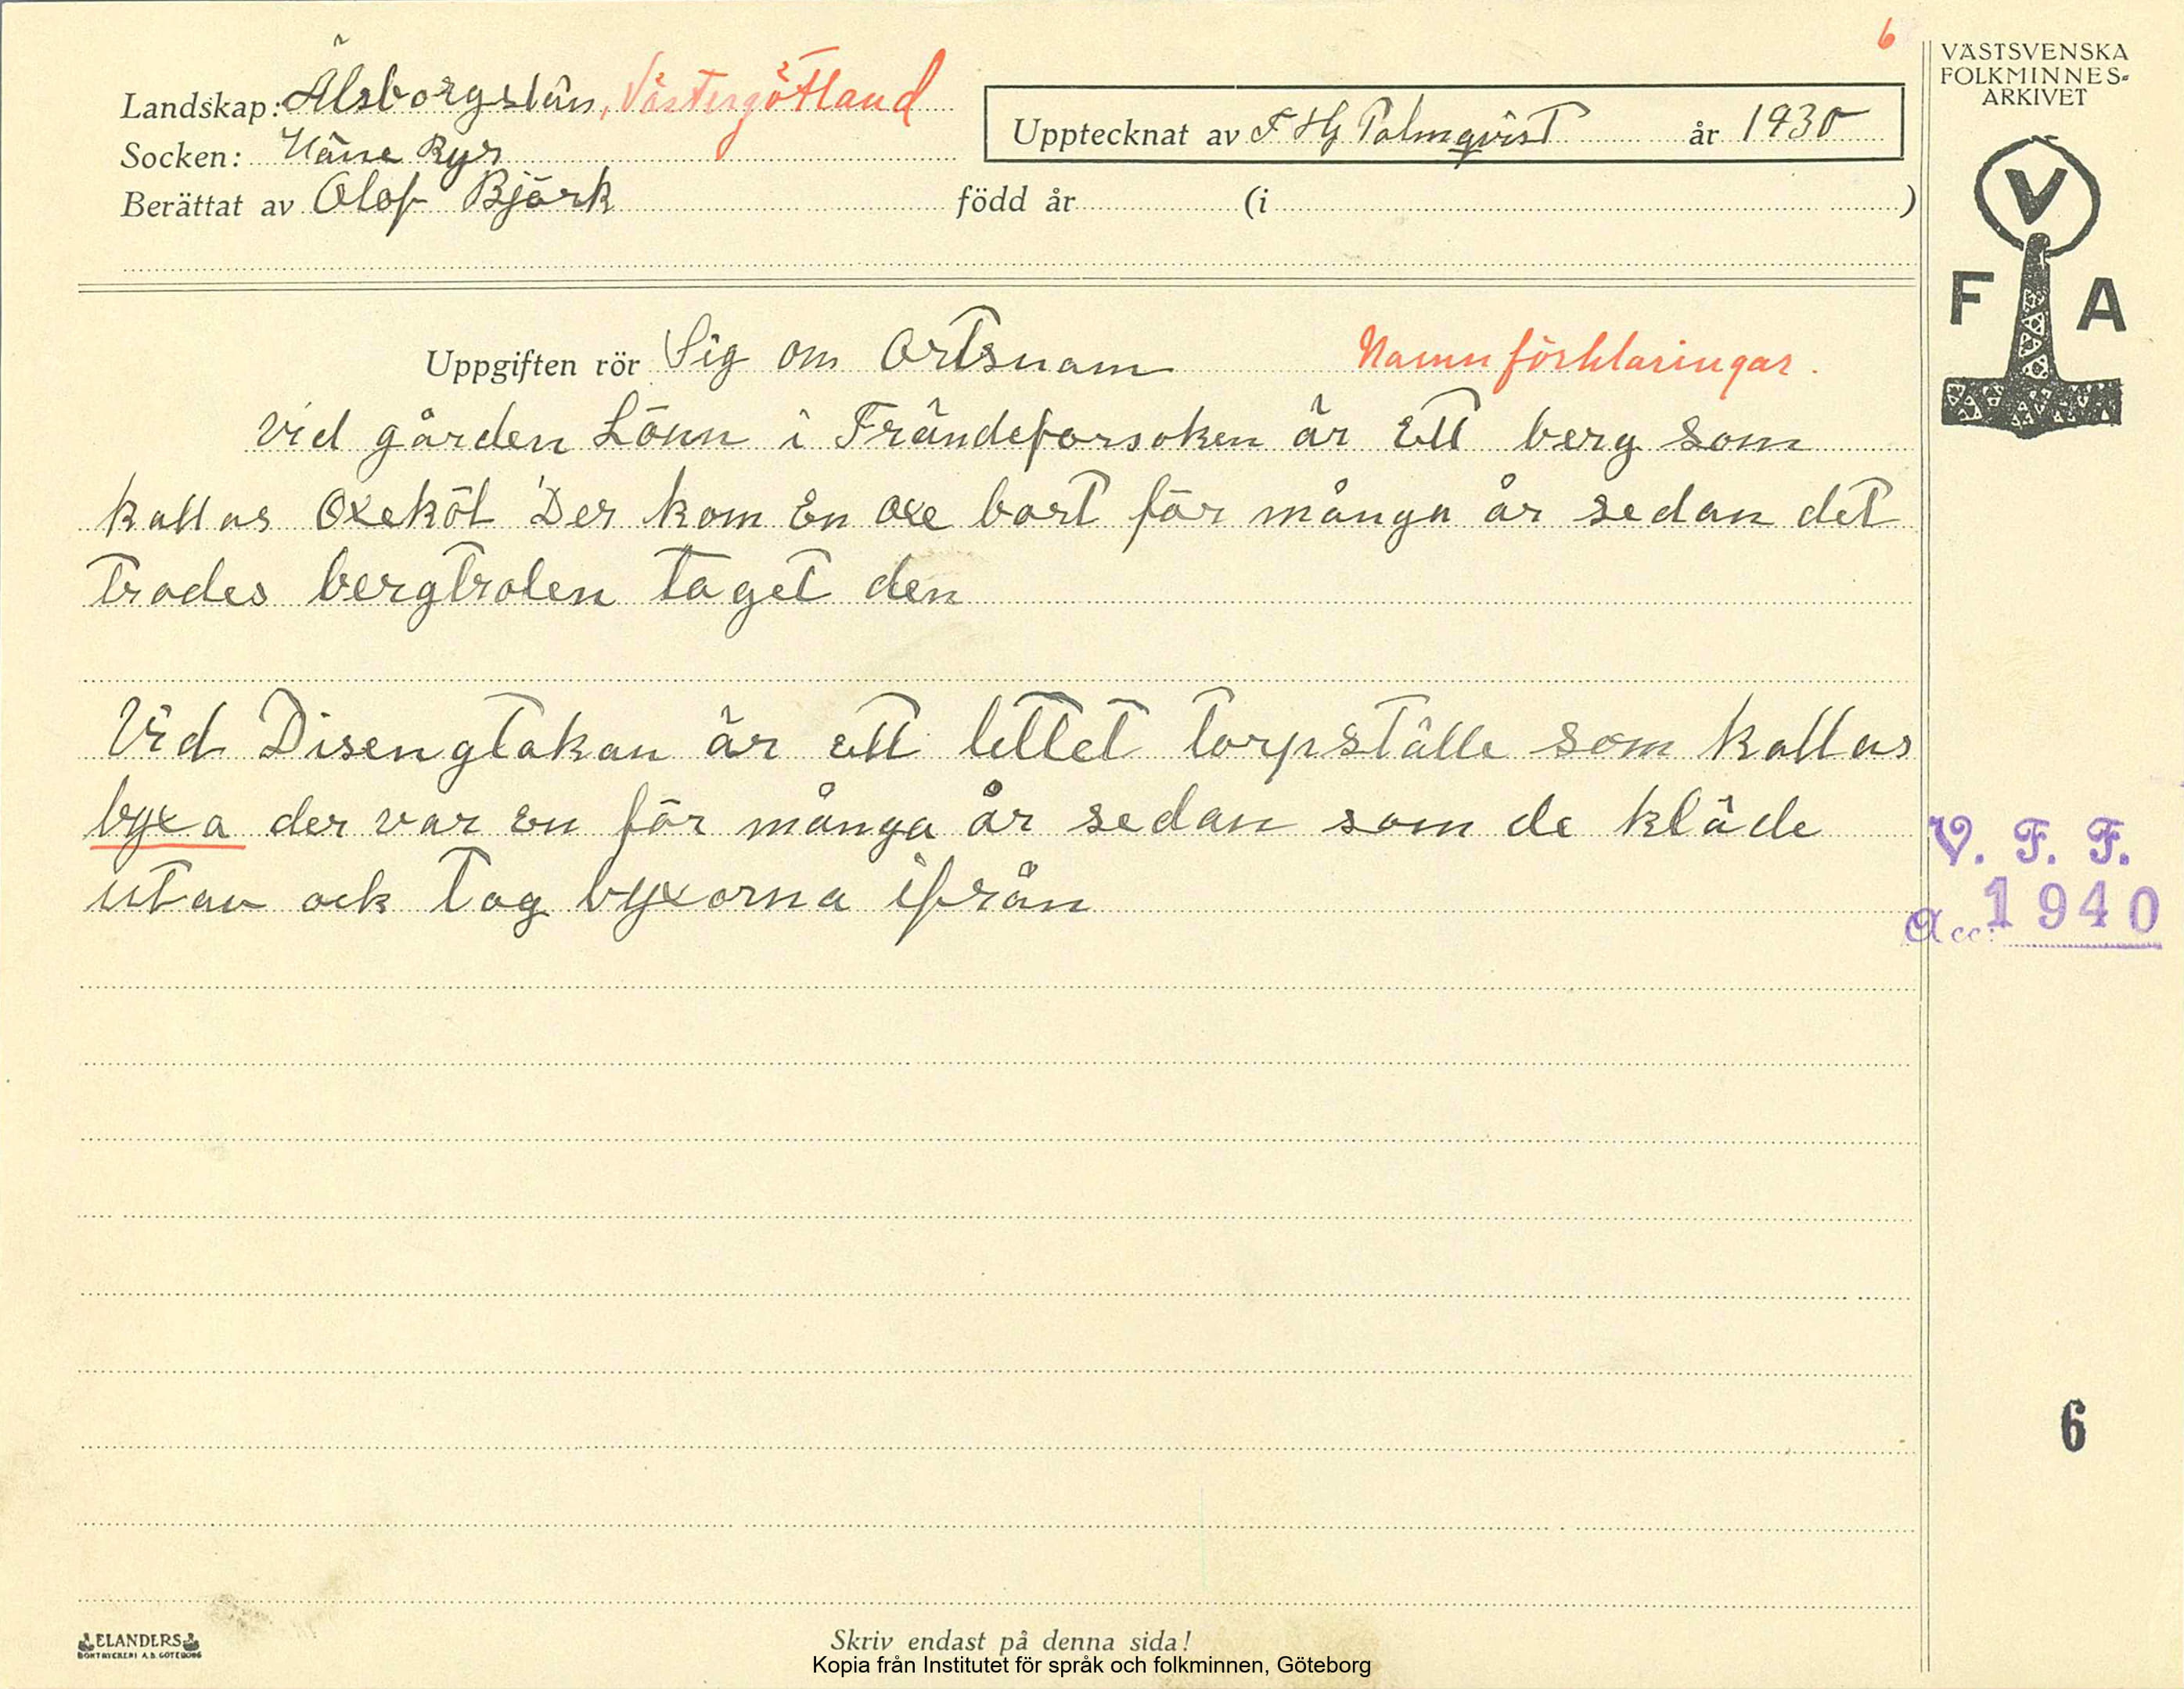 6
VÄSTSVENSKA
FOLKMINNES-
ARKIVET
Landskap: Älsborgslän, Västergötland
Upptecknat av F Hj Palmqvist år 1930
Socken: Häne Ryr
Berättat av Olof Björk född år (i )
V
F A
Uppgiften rör Sig om Ortsnam Namnförklaringar.
Vid gården Lönn i Frändeforsoken är Ett berg som
kallas Oxeköl Der kom En oxe bort för många år sedan det
trodes bergtrolen taget den
Vid Disengtakan är ett littet torpställe som kallas
byxa der var en för många år sedan som de kläde
utav ock tog byxorna ifrån
V. F. F.
Acc. 1940
6
ELANDERS
BOKTRYCKERI A.B. GÖTEBORG
Skriv endast på denna sida!
Kopia från Institutet för språk och folkminnen, Göteborg